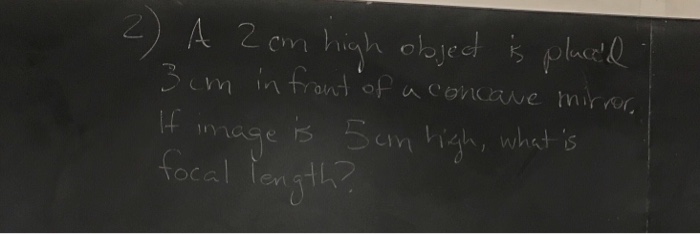 2) A 2 cm high object is placed
3 cm in front of a concave mirror.
If image is 5 cm high, what is
focal length?